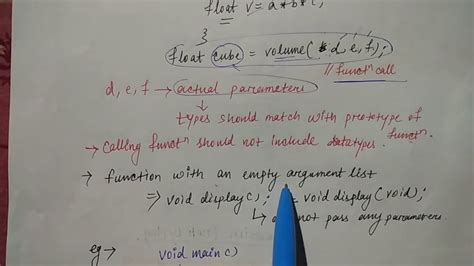 float v = a * b * c;
}
float cube = volume( d, e, f);
// functⁿ call
d, e, f → actual parameters
↳ types should match with prototype of functⁿ.
→ Calling functⁿ should not include datatypes.
→ function with an empty argument list
⇒ void display(); = void display(void);
↳ not pass any parameters.
eg → void main()